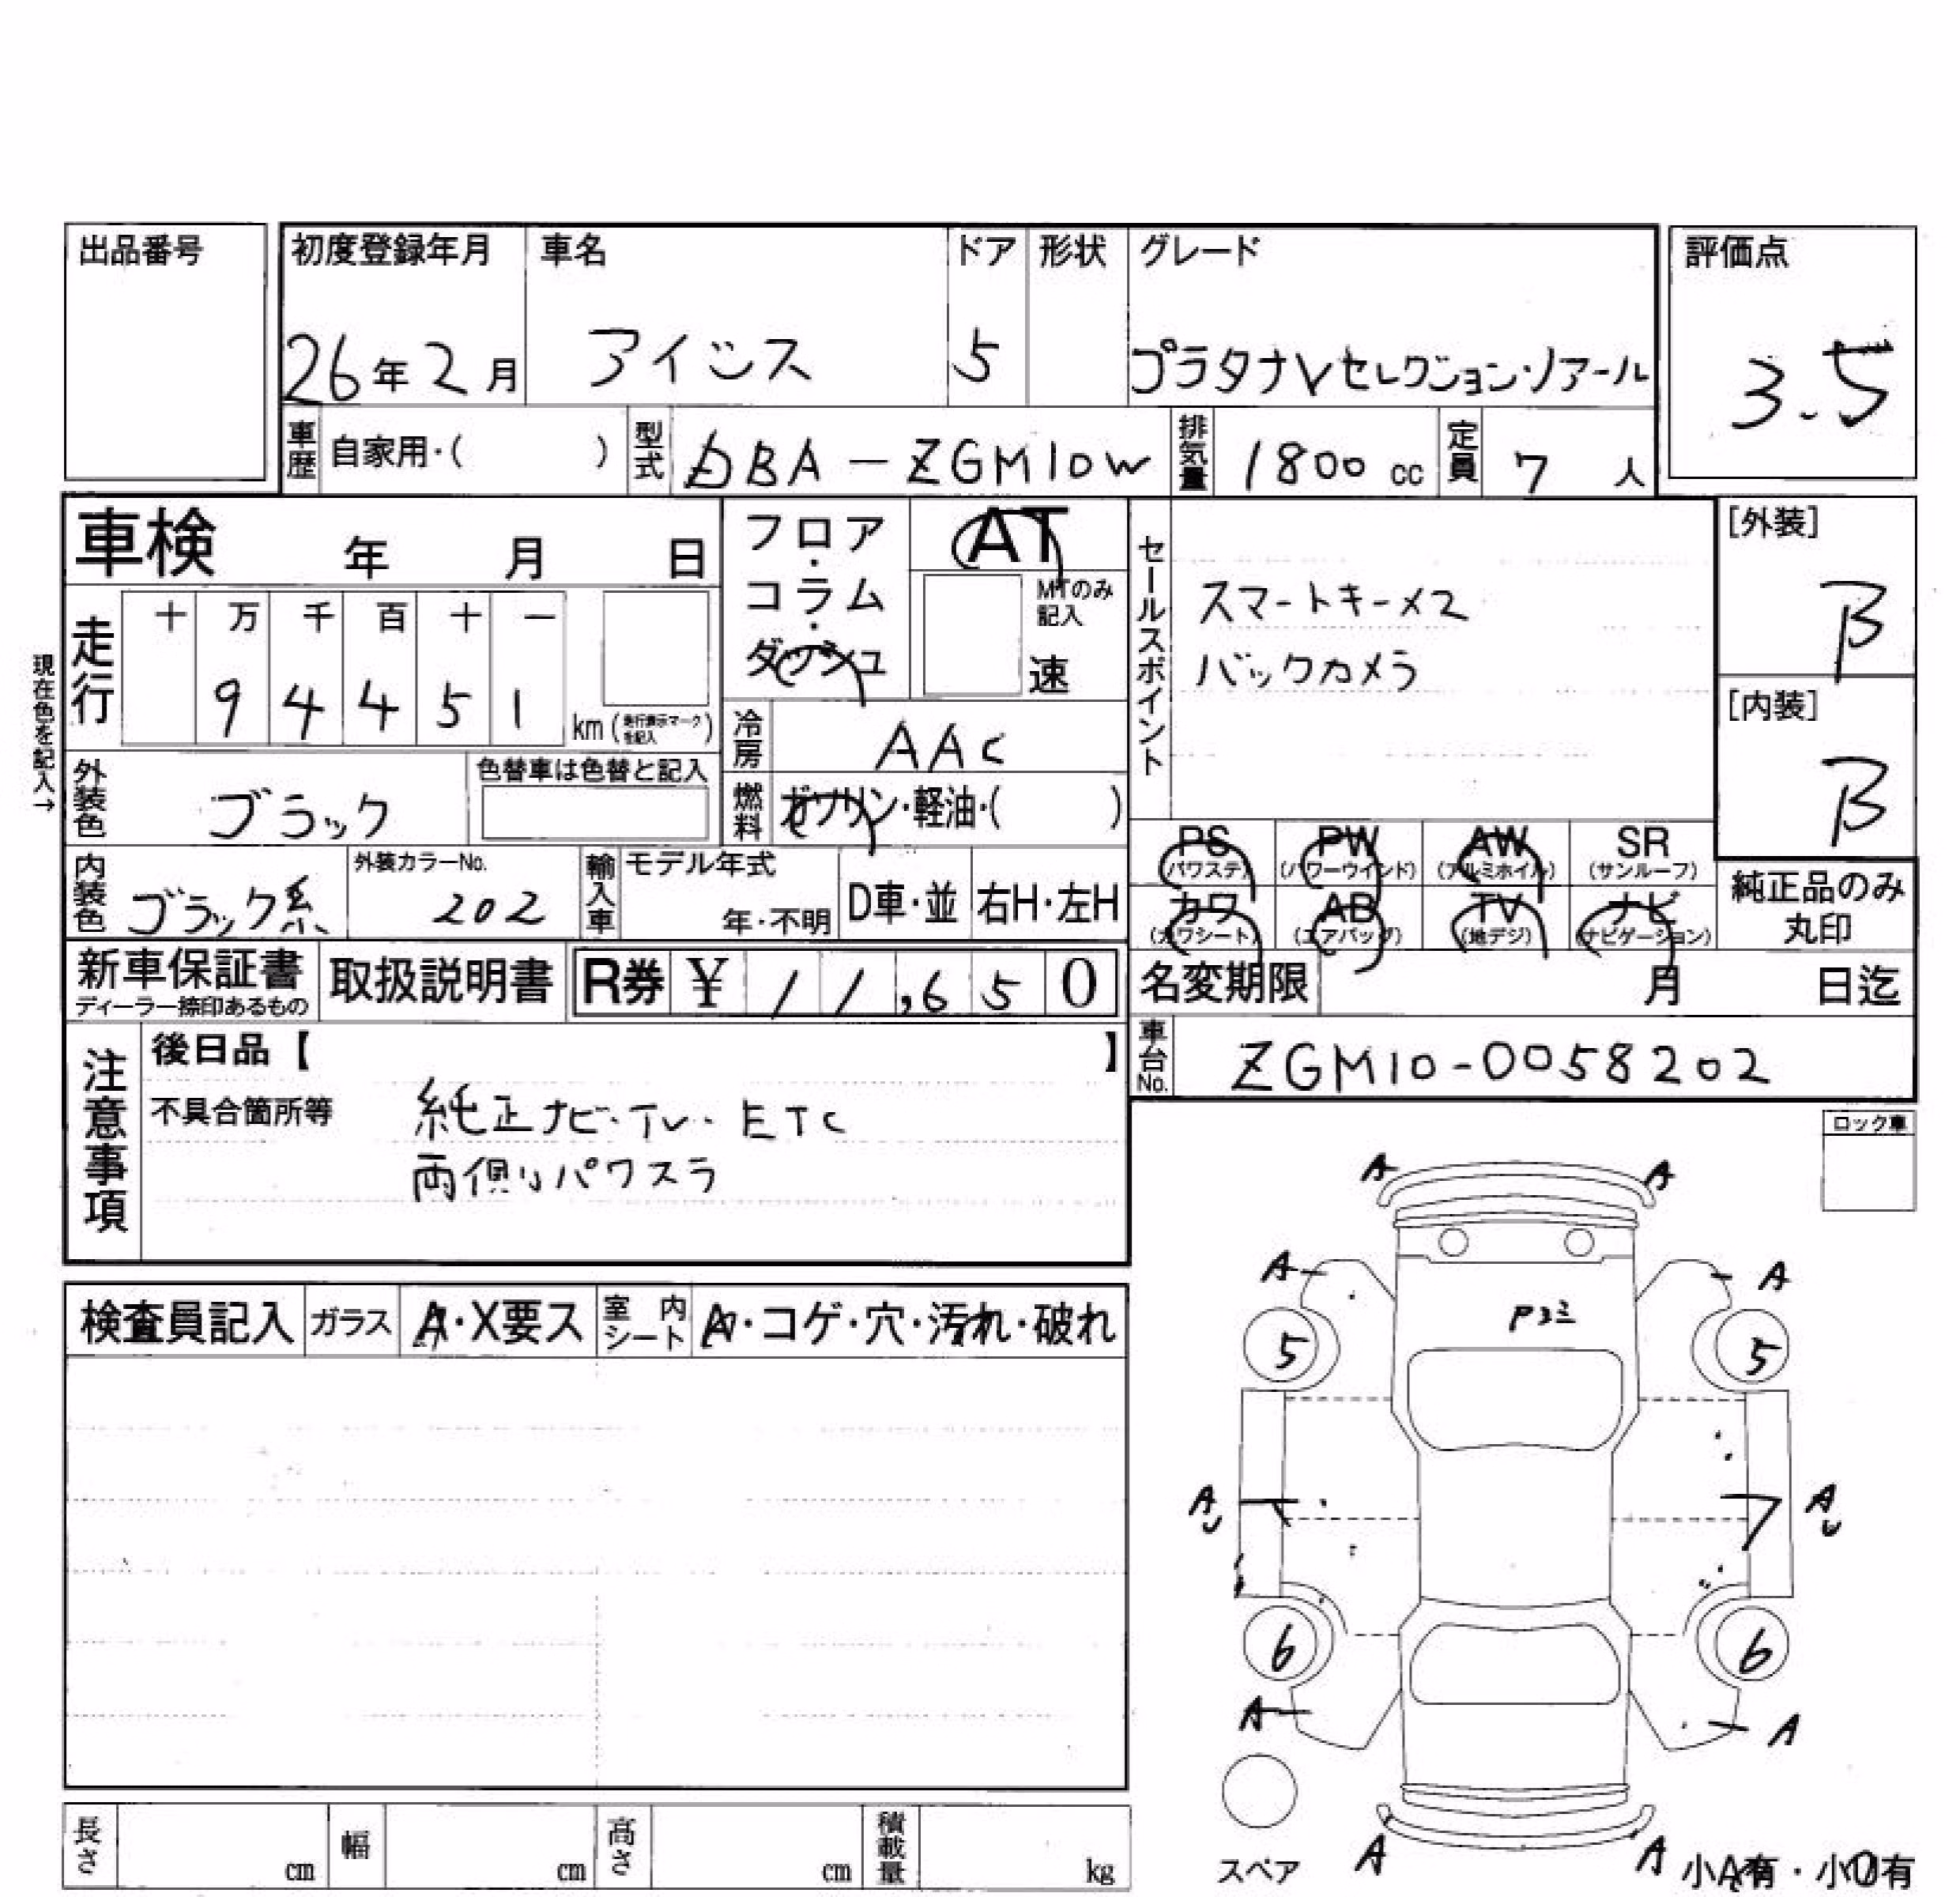 出品番号
初度登録年月
26年2月
車名
アイシス
ドア
5
形状
グレード
プラタナVセレクション・ノアール
評価点
3.5
車歴
自家用・( )
型式
DBA-ZGM10W
排気量
1800 cc
定員
7 人
車検 年 月 日
フロア・コラム・ダッシュ
AT
MTのみ記入
速
セールスポイント
スマートキーメ2
バックカメラ
[外装]
B
[内装]
B
現在色を記入→
走行
十 万 千 百 十 一
9 4 4 5 1
km (走行表示マークを記入)
冷房
AAC
外装色
ブラック
色替車は色替と記入
燃料
ガソリン・軽油・( )
PS (パワステ)
PW (パワーウインド)
AW (アルミホイル)
SR (サンルーフ)
カワ (カワシート)
AB (エアバッグ)
TV (地デジ)
ナビ (ナビゲーション)
純正品のみ
丸印
内装色
ブラック系
外装カラーNo.
202
輸入車
モデル年式
年・不明
D車・並
右H・左H
新車保証書
ディーラー捺印あるもの
取扱説明書
R券 ¥ 11,650
名変期限 月 日迄
車台No.
ZGM10-0058202
注意事項
後日品【 】
不具合箇所等
純正ナビ・TV・ETC
両側パワスラ
ロック車
検査員記入
ガラス
A・X要ス
室内シート
A・コゲ・穴・汚れ・破れ
A A
A A
Pコミ
5 5
A A
6 6
A A
スペア
A A
小A有・小U有
長さ cm
幅 cm
高さ cm
積載量 kg